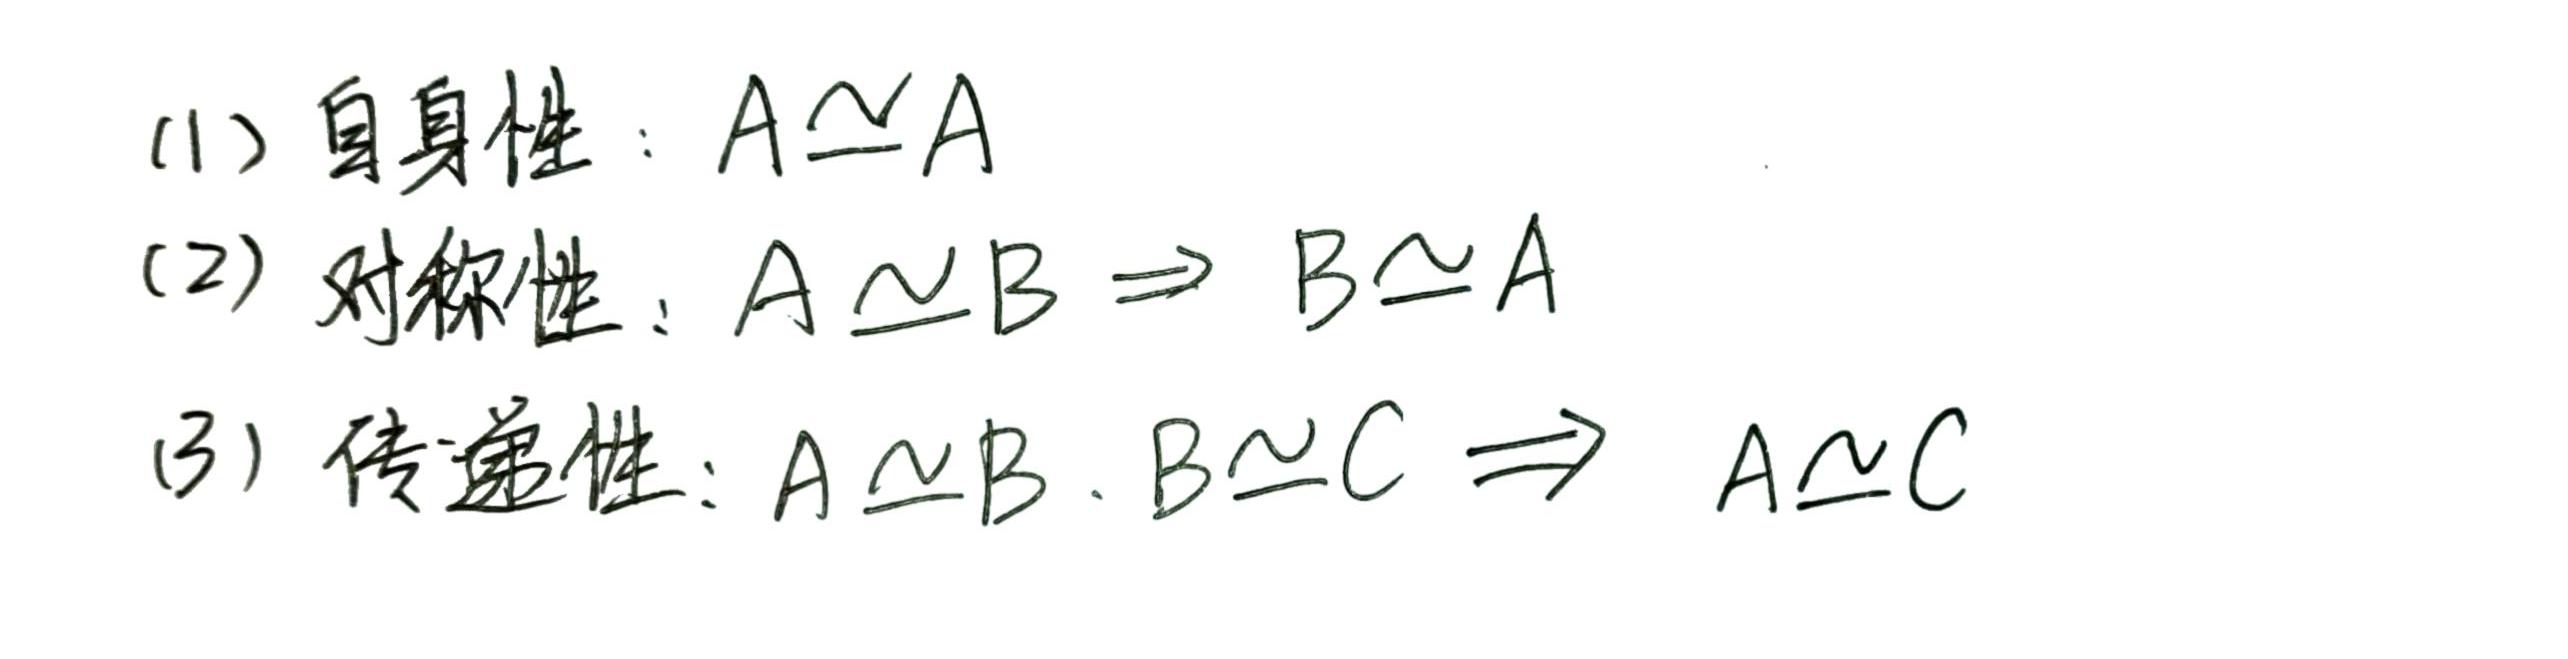 (1) 自身性: A≃A
(2) 对称性: A≃B ⇒ B≃A
(3) 传递性: A≃B. B≃C ⇒ A≃C